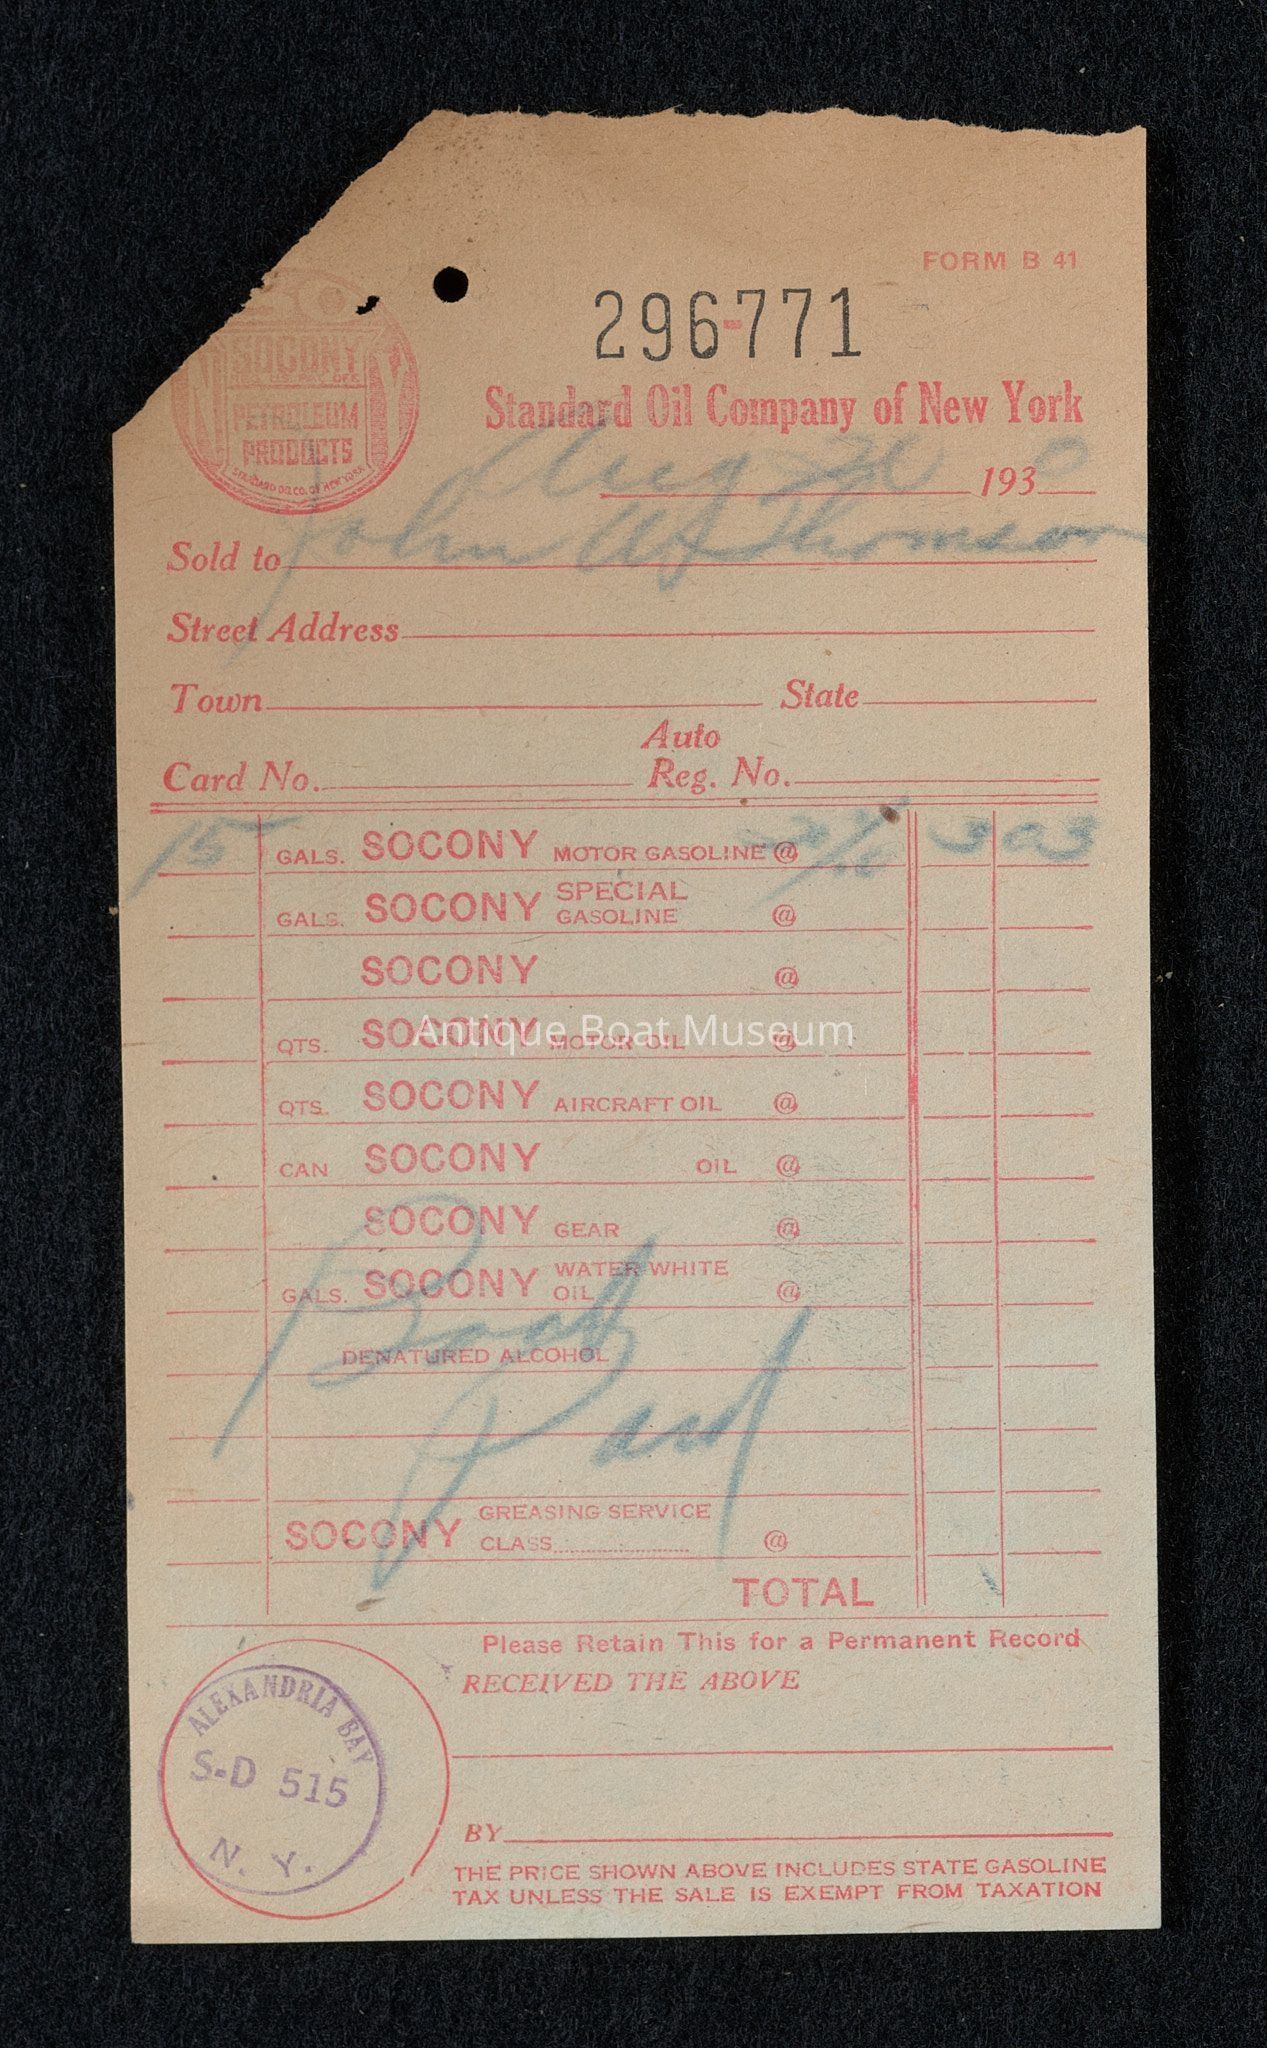 FORM B 41
296-771
SOCONY
REG. U.S. PAT. OFF.
PETROLEUM
PRODUCTS
STANDARD OIL CO. OF NEW YORK
Standard Oil Company of New York
Aug 1930
Sold to John W Thomson
Street Address
Town State
Auto
Card No. Reg. No.
15 GALS. SOCONY MOTOR GASOLINE @ 3 03
SPECIAL
GALS. SOCONY GASOLINE @
SOCONY @
QTS. SOCONY MOTOR OIL @
Antique Boat Museum
QTS. SOCONY AIRCRAFT OIL @
CAN SOCONY OIL @
SOCONY GEAR @
WATER WHITE
GALS. SOCONY OIL @
Boat
DENATURED ALCOHOL
Paid
GREASING SERVICE
SOCONY CLASS @
TOTAL
Please Retain This for a Permanent Record
RECEIVED THE ABOVE
ALEXANDRIA BAY
S-D 515
N. Y.
BY
THE PRICE SHOWN ABOVE INCLUDES STATE GASOLINE
TAX UNLESS THE SALE IS EXEMPT FROM TAXATION